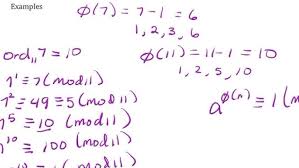 Examples
φ(7) = 7-1 = 6
1, 2, 3, 6
ord₁₁7 = 10
φ(11) = 11-1 = 10
1, 2, 5, 10
7¹ ≡ 7 (mod 11)
7² ≡ 49 ≡ 5 (mod 11)
a^φ(n) ≡ 1 (m
7⁵ ≡ 10 (mod 11)
7¹⁰ ≡ 100 (mod 11)
≡ 1 (mod 11)